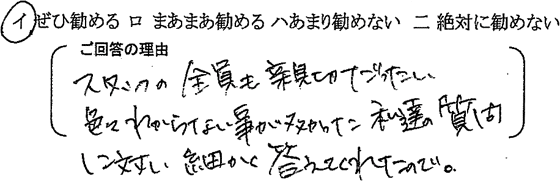 イ ぜひ勧める ロ まあまあ勧める ハ あまり勧めない ニ 絶対に勧めない
ご回答の理由
スタッフの 全員も 親切でだったし
色々わからない事が多かった 私達の質問
に対し 細かく 答えてくれたので。